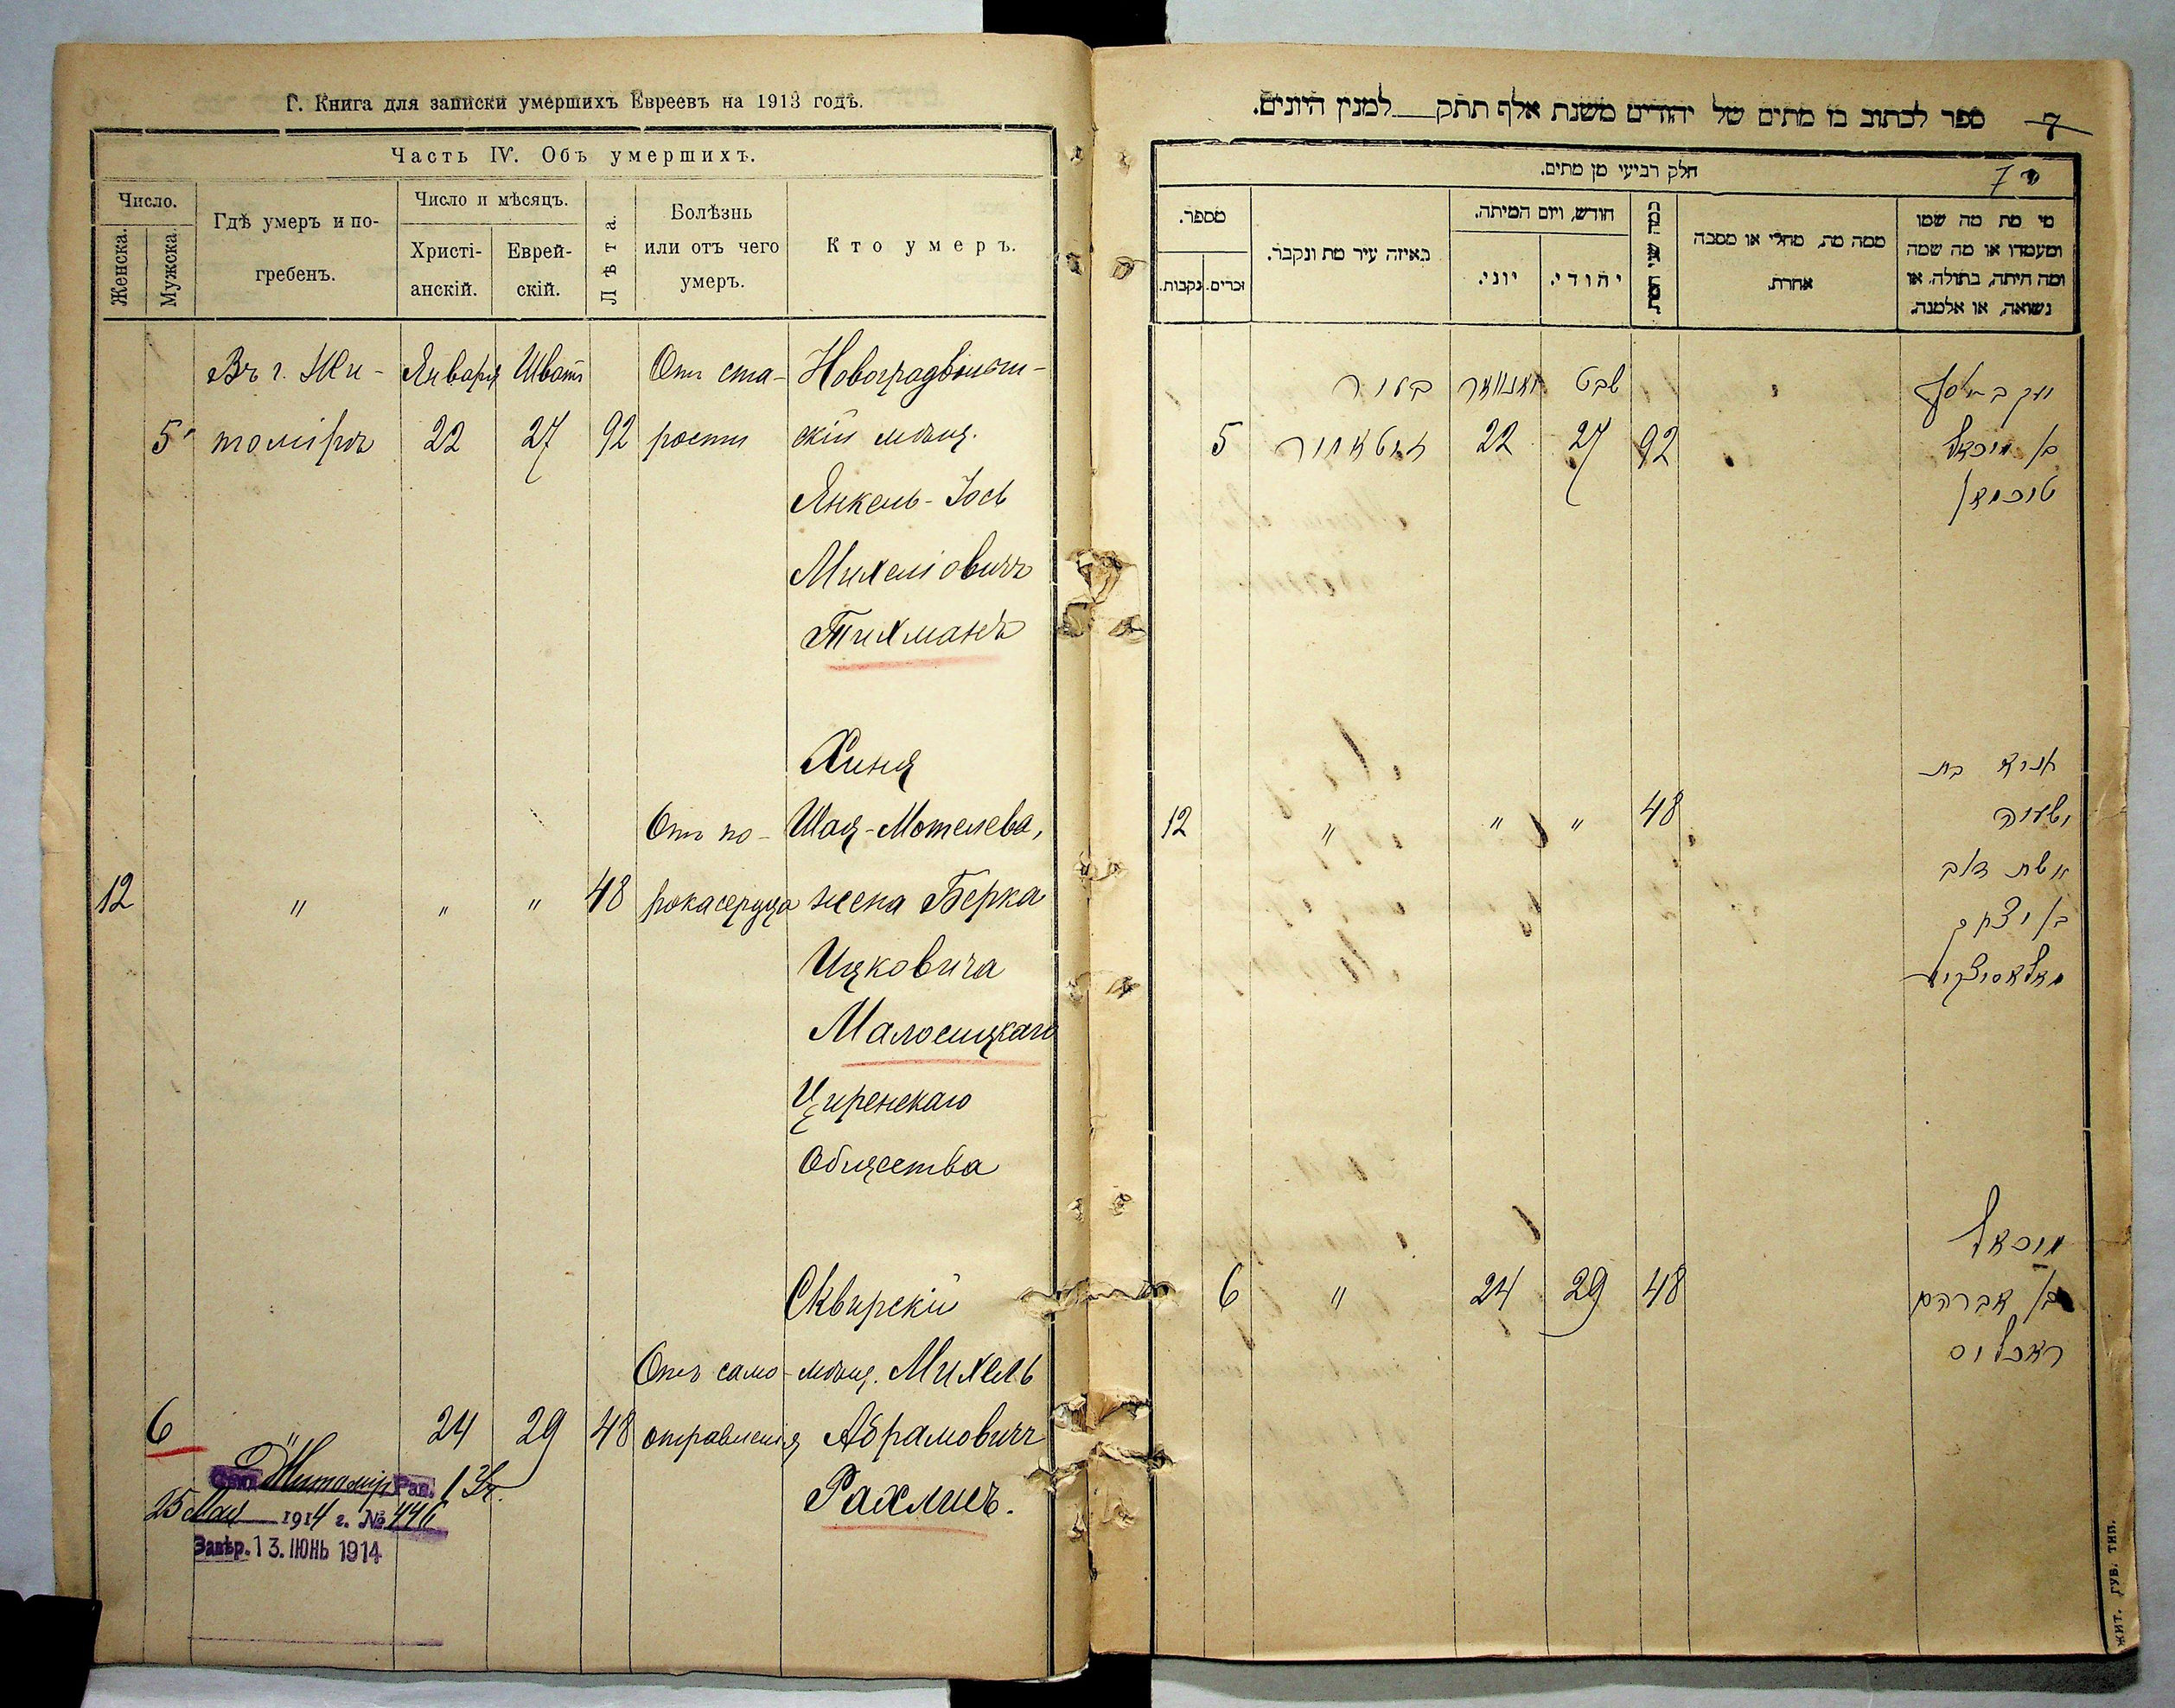 Г. Книга для записки умершихъ Евреевъ на 1913 годъ.
Часть IV. Объ умершихъ.
Число.
Женска.
Мужска.
Гдѣ умеръ и по-
гребенъ.
Число и мѣсяцъ.
Христі-
анскій.
Еврей-
скій.
Лѣта.
Болѣзнь
или отъ чего
умеръ.
Кто умеръ.
Въ г. Жи- Января Шватъ Отъ ста- Новоградволын-
5 томірѣ 22 27 92 рости скій мѣщ.
Янкель-Іось
Михелiовичъ
Тихманъ
Хиня
Отъ по- Шая-Мотелева,
12 " " " 48 рока сердца жена Берка
Ицковича
Малосицкаго
Циренскаго
Общества
Сквирскій
Отъ само- мѣщ. Михель
6 " 24 29 48 отравленія Абрамовичъ
Рахлисъ.
Житомір Рав.
25 Мая 1914 г. № 446
Завѣр. 13. ІЮНЬ 1914
ספר לכתוב בו מתים של יהודים משנת אלף תתק למנין היונים.
7
חלק רביעי מן מתים.
7
מספר.
זכרים.
נקבות.
באיזה עיר מת ונקבר.
חודש, ויום המיתה.
יוני.
יהודי.
כמה שני המת.
ממה מת, מחלי או מסבה
אחרת.
מי מת מה שמו
ומעמדו או מה שמה
ומה היתה, בתולה, או
נשואה, או אלמנה.
בעיר יאנוואר שבט
5 זיטאמיר 22 27 92 בן מיכאל
טיכמאן
חניא בת
12 " " " 48 ישעיה
אשת דוב
בן יצחק
מאלאסיצקי
מיכאל
6 " 24 29 48 בן אברהם
ראכליס
ЖИТ. ГУБ. ТИП.